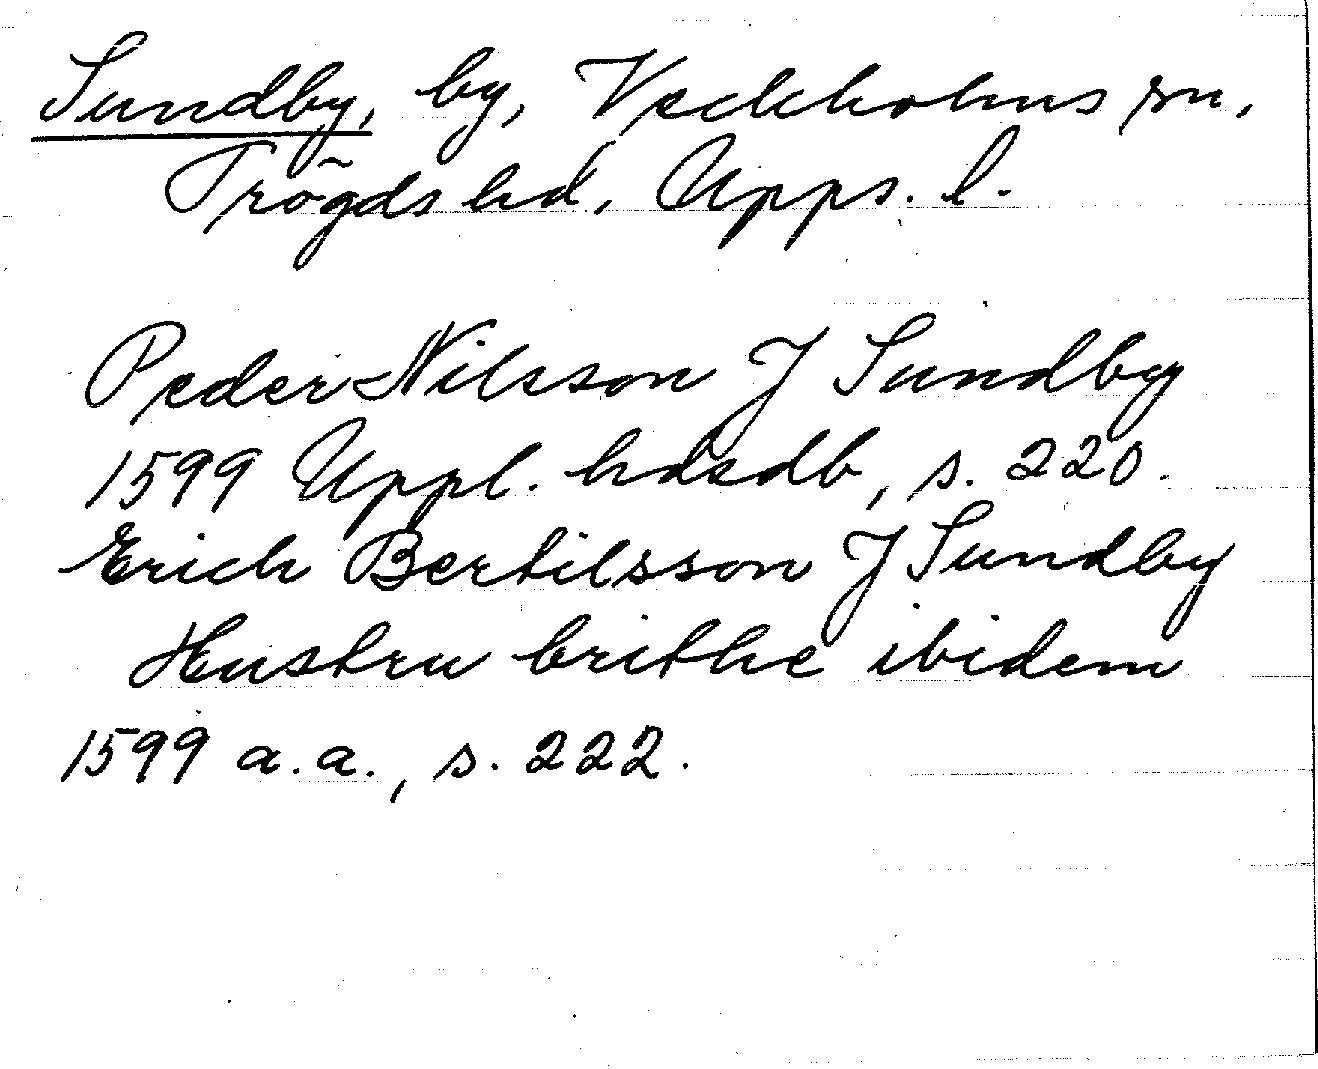 Sundby, by, Veckholms sn,
Trögds hd, Upps. l.
Peder Nilsson J Sundby
1599 Uppl. hdsdb, s. 220.
Erich Bertilsson J Sundby
Hustru brithe ibidem
1599 a.a., s. 222.